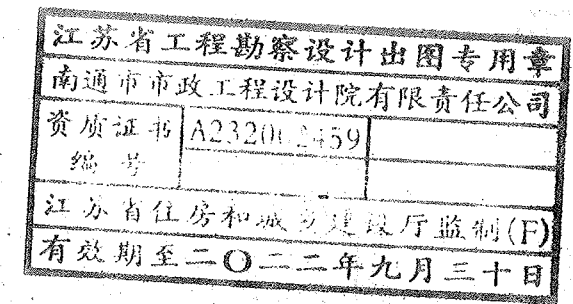 江苏省工程勘察设计出图专用章
南通市市政工程设计院有限责任公司
资质证书
编号
江苏省住房和城乡建设厅监制(F)
有效期至二〇二二年九月三十日